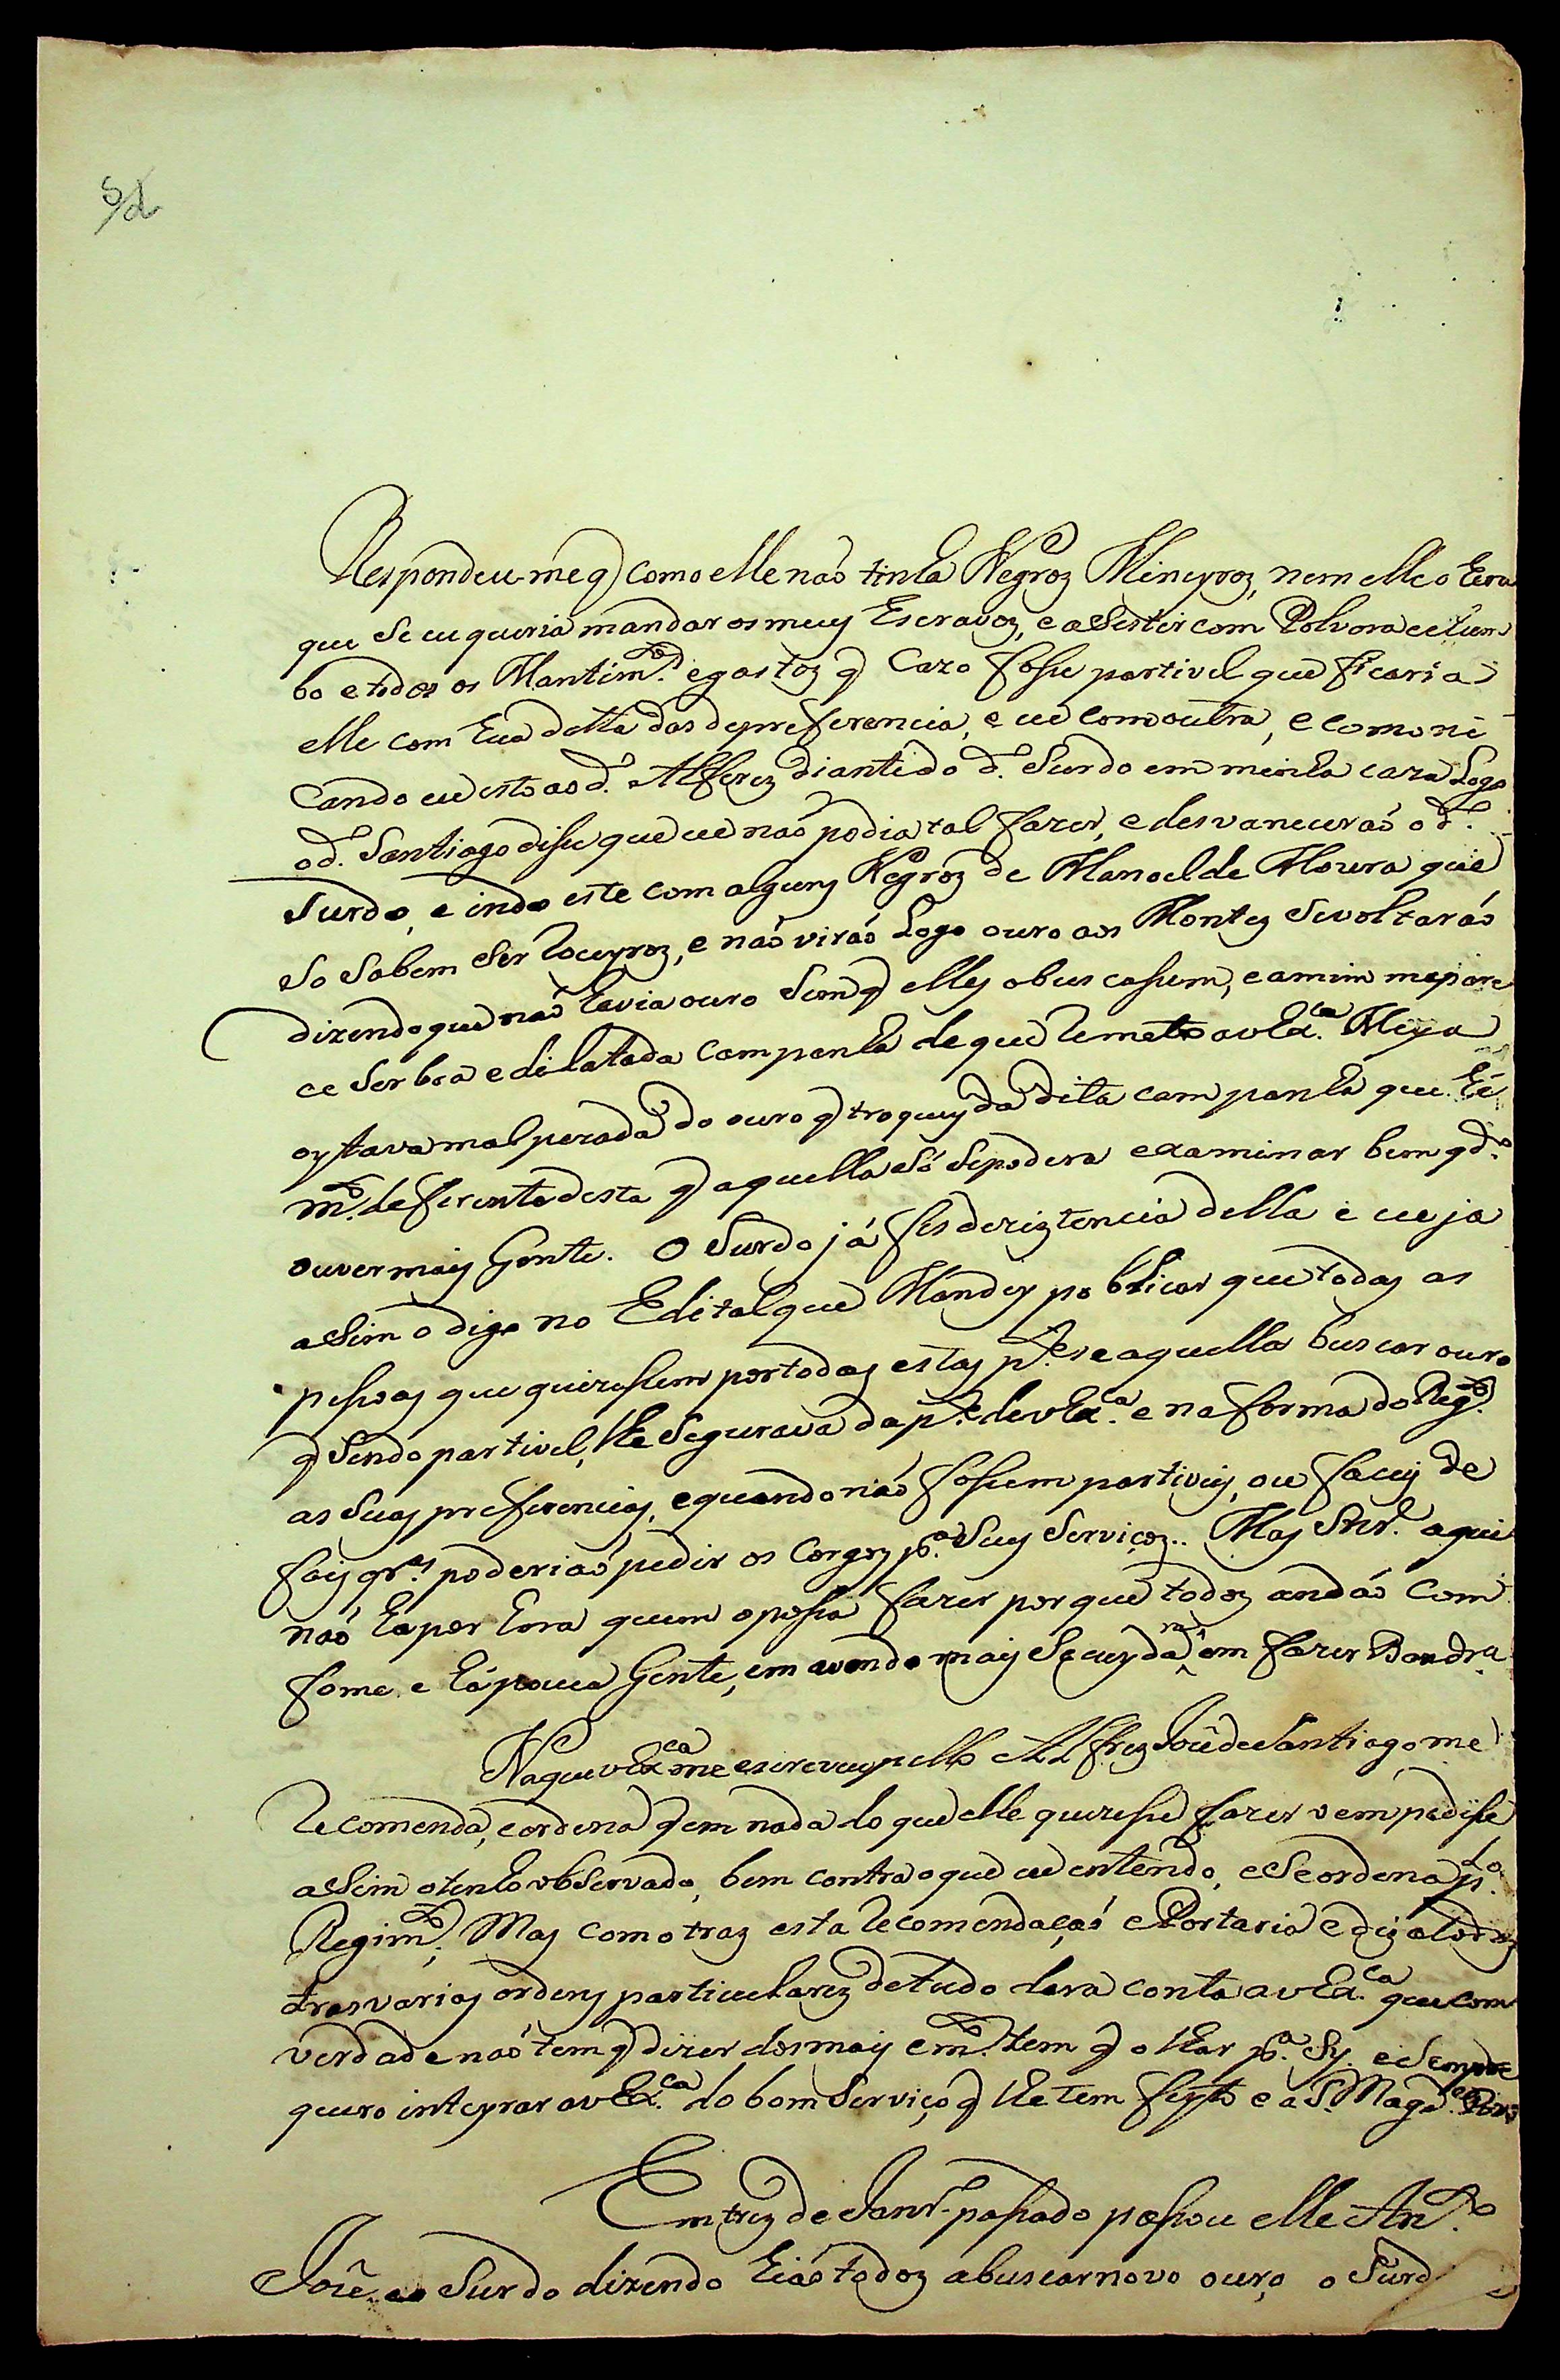 S/d
Respondeu-me q̃ como elle não tinha Negros Mineyros, nem elle o hera
que se eu queria mandar os meus Escravos, e asestir com Polvora e chum
bo e todos os Mantim.tos e gastos q̃ Cazo fosse partivel que ficaria
elle com hua detta das de preferencia, e eu com outra, e comoni
cando eu esto ao d.º Alferez diante do d.º Surdo em minha caza Logo
o d.º Santiago disse que eu não podia tal fazer, e desvanecerão o d.º
Surdo, e indo este com alguns Negros de Manoel de Moura que
so sabem ser Roceyros, e não virão Logo ouro aos Montes se voltarão
dizendo que não havia ouro sem q̃ elles o buscassem, e a mim me pare
ce ser boa e dilatada campanha de que Remeto a v Ex.ca Meya
oytava mal pezada do ouro q̃ troquey da dita campanha que hé
m.to deferente desta q̃ aquella só se podera examinar bem q.do
ouver mais Gente. O Surdo já fes dezistencia della e eu ja
assim o digo no Edital que Mandey poblicar que todas as
pessoas que quizessem por todas estas p.tes e aquella buscar ouro
q̃ sendo partivel, lhe segurava da p.te de v Ex.ca e na forma do Reg.to
as suas preferencias, e quando não fossem partiveis, ou faceis de
fais q.es poderião pedir os Corgos p.ª seus Serviços.. Mas Snr.' aqui
não ha por hora quem o possa fazer porque todos andão com
fome e há pouca Gente, em avendo mais se cuydará em fazer Bandra
Na que v Ex.ca me escreveu pello Alferez Joze de Santiago me
Recomenda, e ordena q̃ em nada do que elle quizesse fazer o empedisse
assim o tenho observado, bem contra o que eu entendo, e se ordena p.lo
Regim.to; Mas como traz esta Recomendação e Portaria e diz a todos
tras varias ordens particulares de tudo dara conta a v Ex.ca que com
verdade não tem q̃ dizer dos mais e m.to tem q̃ olhar p.ª sy. e sempre
quero inteyrar a v Ex.ca do bom Serviço q̃ lhe tem feyto e a S. Mag.de
Em trez de Janr.º passado passou elle An.to
Joze ao Surdo dizendo hião todos a buscar novo ouro o Surd